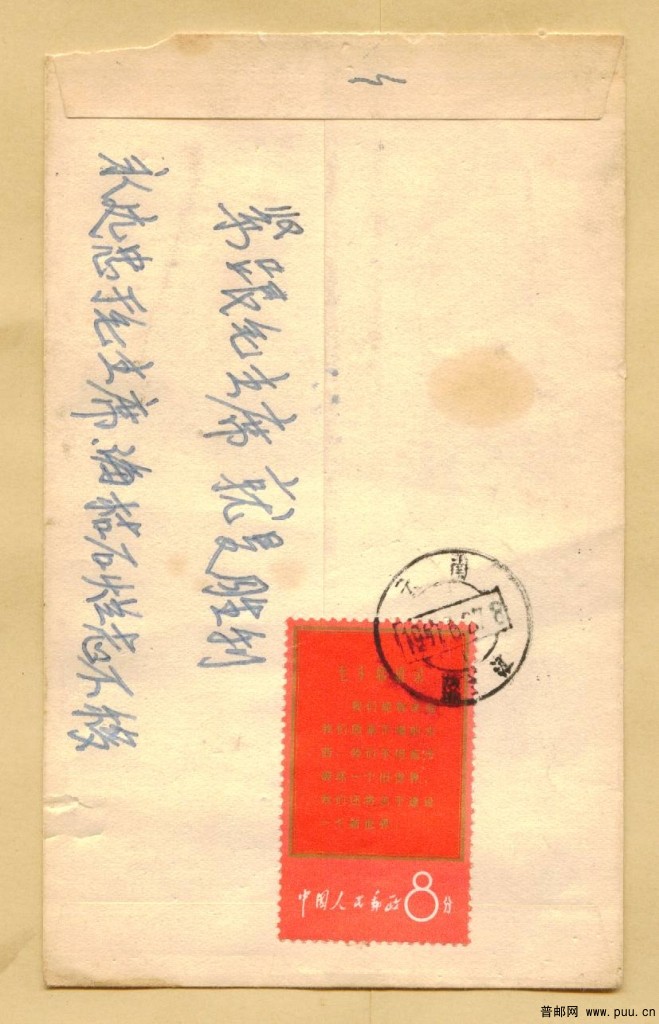 紧跟毛主席就是胜利
永远忠于毛主席、海枯石烂志不移
云南
毛主席语录
我们能够学会
我们原来不懂的东
西。我们不但善于
破坏一个旧世界，
我们还将善于建设
一个新世界
中国人民邮政8分
普邮网 www.puu.cn